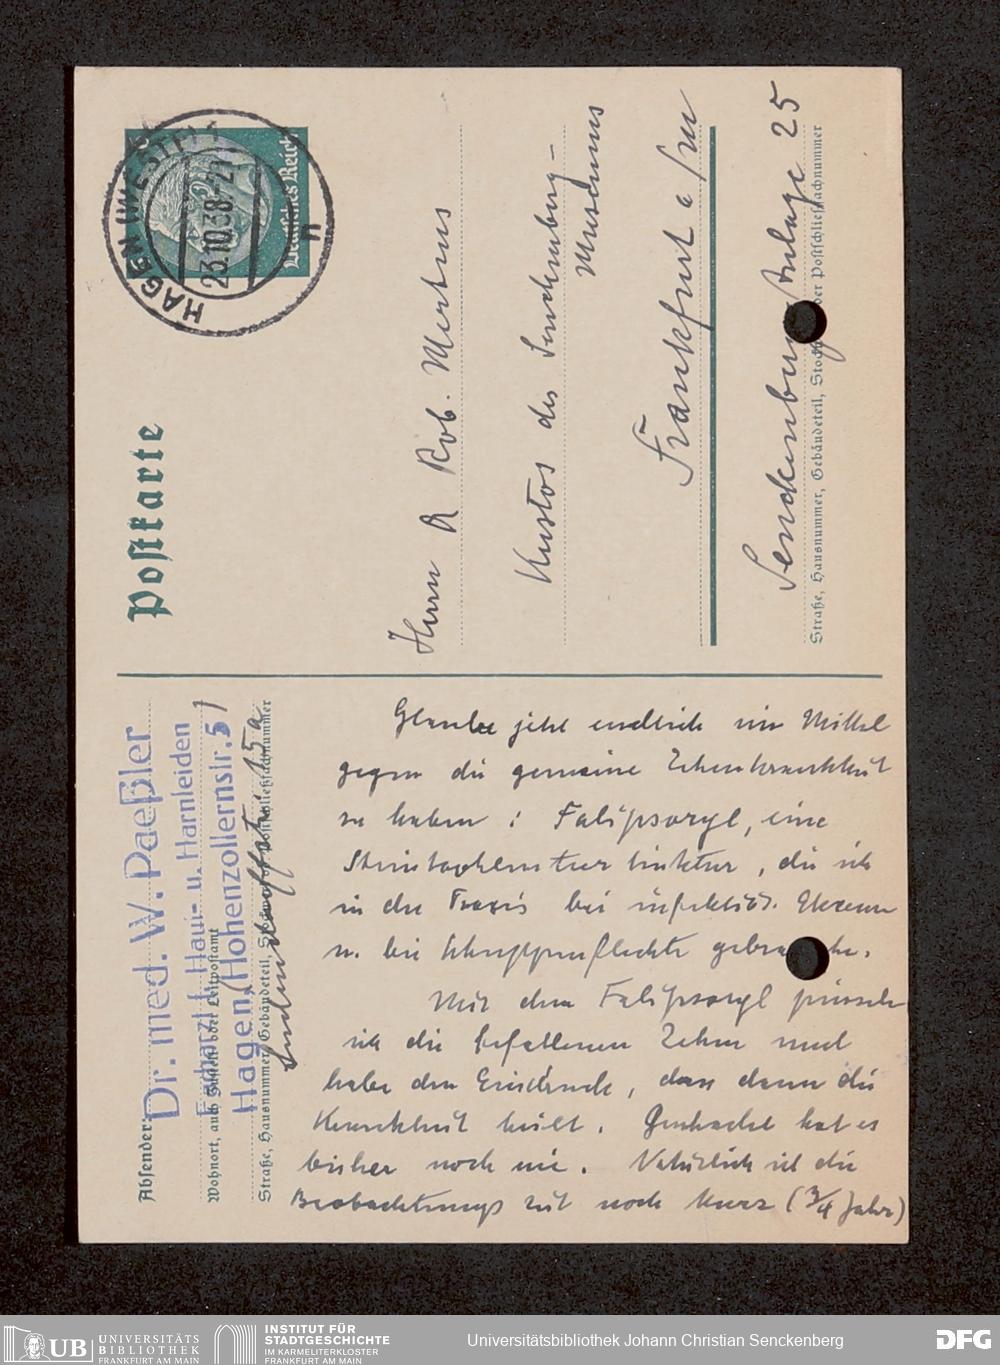 Postkarte
HAGEN (WESTF) 1
23.10.38-21
n
Deutsches Reich
Herrn R Rob. Mertens
Kustos des Senckenberg-
Museums
Frankfurt a/M
Senckenberg Anlage 25
Straße, Hausnummer, Gebäudeteil, Stockwerk oder Postschließfachnummer
Absender:
Dr. med. W. Paeßler
Facharzt f. Haut- u. Harnleiden
Wohnort, auch Zustell- oder Leitpostamt
Hagen, Hohenzollernstr. 5
Straße, Hausnummer, Gebäudeteil, Stockwerk oder Postschließfachnummer
15a
Glaube jetzt endlich ein Mittel
gegen die gemeine Zehenkrankheit
zu haben: Falipsoryl, eine
Steinkohlenteertinktur, die ich
in der Praxis bei infektiös. Ekzemen
u. bei Schuppenflechte gebrauche.
Mit dem Falipsoryl pinsele
ich die befallenen Zehen und
habe den Eindruck, dass dann die
Krankheit heilt. Geschadet hat es
bisher noch nie. Natürlich ist die
Beobachtungszeit noch kurz (3/4 Jahr)
UB UNIVERSITÄTS
BIBLIOTHEK
FRANKFURT AM MAIN
INSTITUT FÜR
STADTGESCHICHTE
IM KARMELITERKLOSTER
FRANKFURT AM MAIN
Universitätsbibliothek Johann Christian Senckenberg
DFG